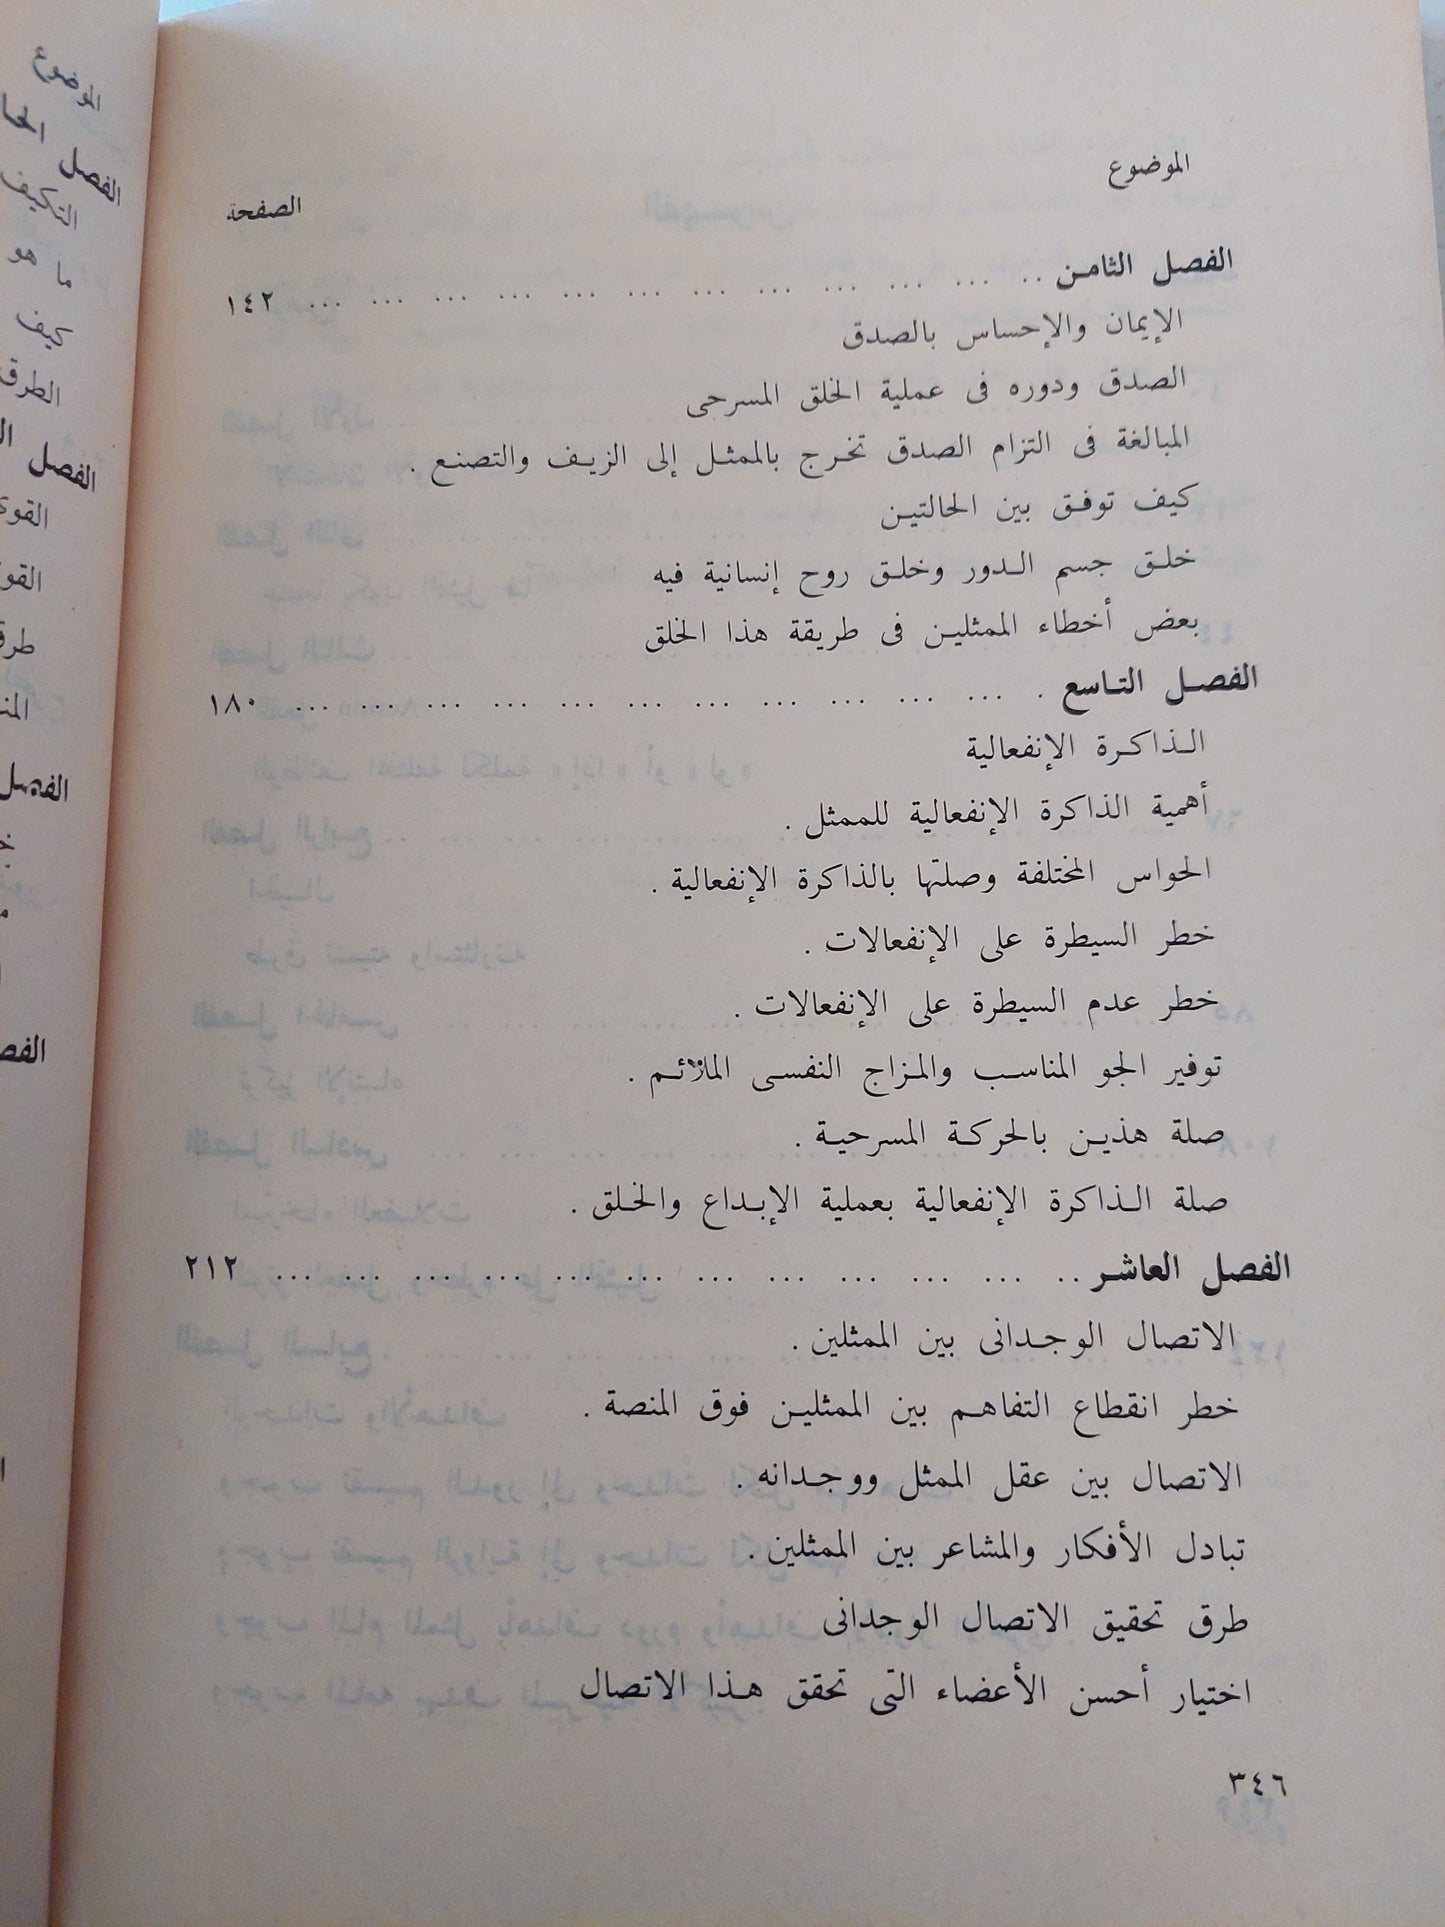 الموضوع
الصفحة
الفصل الثامن .. ... ... ... ... ... ... ... ... ... ... ... ١٤٢
الإيمان والإحساس بالصدق
الصدق ودوره فى عملية الخلق المسرحى
المبالغة فى التزام الصدق تخرج بالممثل إلى الزيف والتصنع .
كيف توفق بين الحالتين
خلق جسم الدور وخلق روح إنسانية فيه
بعض أخطاء الممثلين فى طريقة هذا الخلق
الفصل التاسع . ... ... ... ... ... ... ... ... ... ... ... ١٨٠
الذاكرة الإنفعالية
أهمية الذاكرة الإنفعالية للممثل .
الحواس المختلفة وصلتها بالذاكرة الإنفعالية .
خطر السيطرة على الإنفعالات .
خطر عدم السيطرة على الإنفعالات .
توفير الجو المناسب والمزاج النفسى الملائم .
صلة هذين بالحركة المسرحية .
صلة الذاكرة الإنفعالية بعملية الإبداع والخلق .
الفصل العاشر .. ... ... ... ... ... ... ... ... ... ... ... ٢١٢
الاتصال الوجدانى بين الممثلين .
خطر انقطاع التفاهم بين الممثلين فوق المنصة .
الاتصال بين عقل الممثل ووجدانه .
تبادل الأفكار والمشاعر بين الممثلين .
طرق تحقيق الاتصال الوجدانى
اختيار أحسن الأعضاء التى تحقق هذا الاتصال
٣٤٦
الموضوع
الفصل الحا
التكيف
ما هو
كيف
الطرق
الفصل
طرق
الفصل